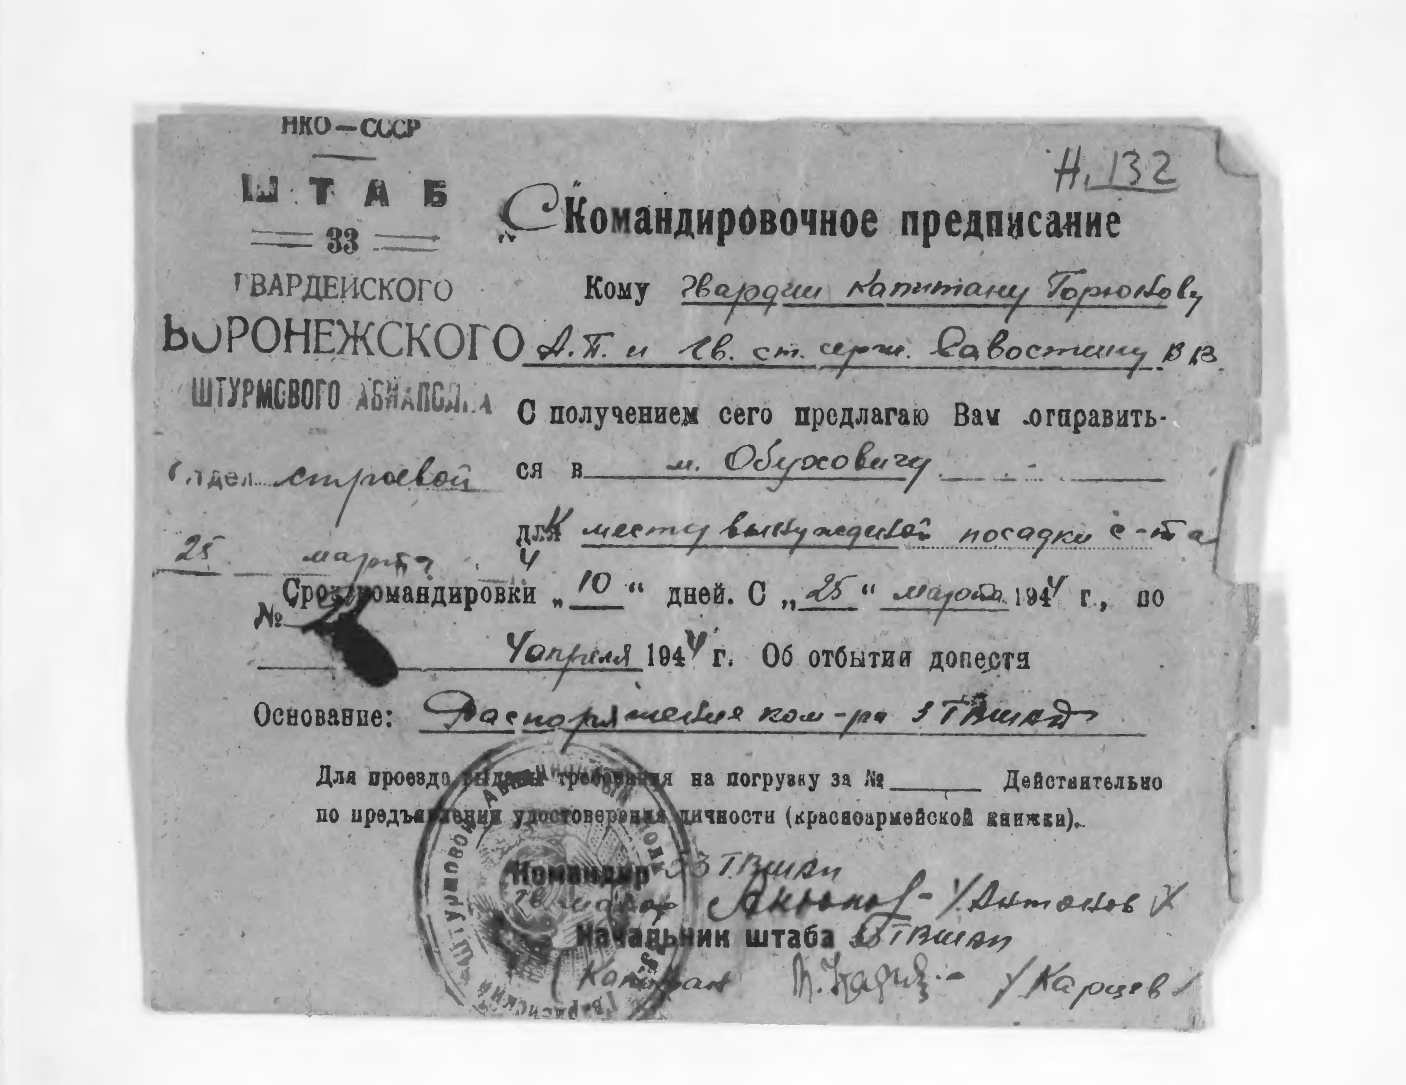 НКО — СССР
ШТАБ
33
ГВАРДЕЙСКОГО
ВОРОНЕЖСКОГО
ШТУРМОВОГО АВИАПОЛКА
Отдел строевой
25 марта 4
№
Н. 132
Командировочное предписание
Кому гвардии капитану Горюнову
А.П. и гв. ст. серж. Савостину В В
С получением сего предлагаю Вам отправить-
ся в м. Обуховичу
для к месту вынужденной посадки с-та
Срок командировки „10“ дней. С „25“ марта 1944 г., по
4 апреля 1944 г. Об отбытии донести
Основание: Распоряжения ком-ра 3 ГВШАД
Для проезда выданы требования на погрузку за № Действительно
по предъявлении удостоверения личности (красноармейской книжки).
Командир 33 ГВШАП
гв. майор /Антонов/
Начальник штаба 33 ГВШАП
Капитан /Карцев/
Гвардейский Штурмовой Авиационный полк